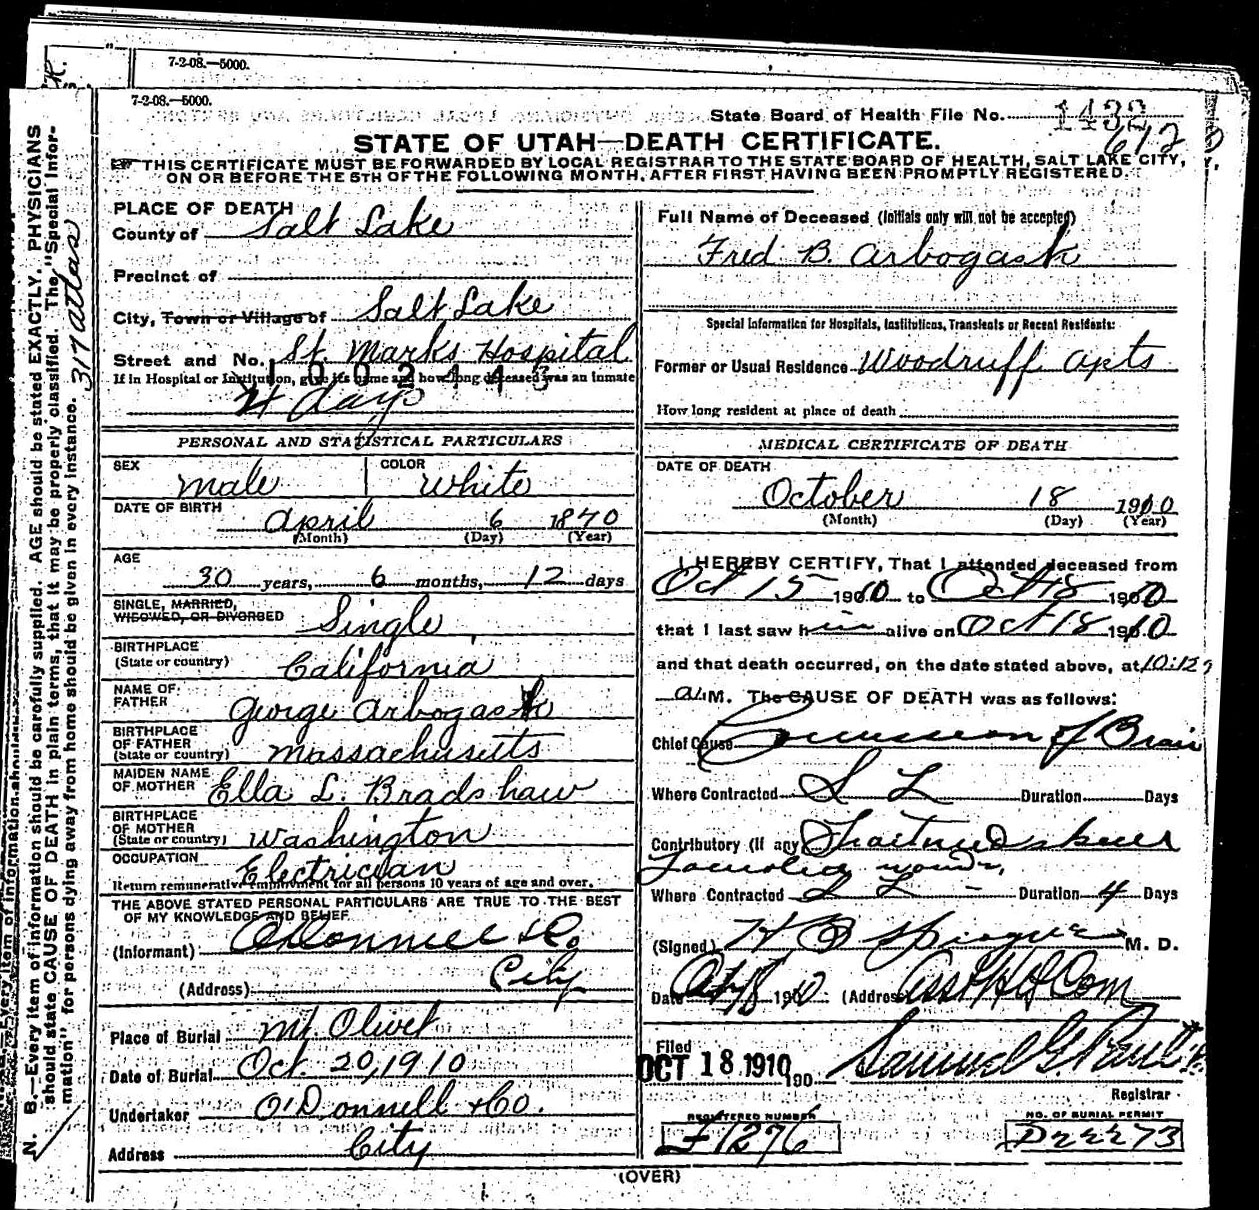 7-2-08.—5000.
7-2-08.—5000.
State Board of Health File No. 1432
612
STATE OF UTAH—DEATH CERTIFICATE.
THIS CERTIFICATE MUST BE FORWARDED BY LOCAL REGISTRAR TO THE STATE BOARD OF HEALTH, SALT LAKE CITY,
ON OR BEFORE THE 5TH OF THE FOLLOWING MONTH, AFTER FIRST HAVING BEEN PROMPTLY REGISTERED.
N. B.—Every item of information should be carefully supplied. AGE should be stated EXACTLY. PHYSICIANS
should state CAUSE OF DEATH in plain terms, that it may be properly classified. The "Special Infor-
mation" for persons dying away from home should be given in every instance. 317 Atlas
PLACE OF DEATH
County of Salt Lake
Precinct of
City, Town or Village of Salt Lake
Street and No. St. Marks Hospital
1002443
If in Hospital or Institution, give its name and how long deceased was an inmate
4 days
PERSONAL AND STATISTICAL PARTICULARS
SEX male COLOR White
DATE OF BIRTH April 6 1870
(Month) (Day) (Year)
AGE 30 years, 6 months, 12 days
SINGLE, MARRIED,
WIDOWED, OR DIVORCED Single
BIRTHPLACE
(State or country) California
NAME OF
FATHER George Arbogast
BIRTHPLACE
OF FATHER
(State or country) Massachusetts
MAIDEN NAME
OF MOTHER Ella L. Bradshaw
BIRTHPLACE
OF MOTHER
(State or country) Washington
OCCUPATION Electrician
Return remunerative employment for all persons 10 years of age and over.
THE ABOVE STATED PERSONAL PARTICULARS ARE TRUE TO THE BEST
OF MY KNOWLEDGE AND BELIEF
(Informant) O'Donnell & Co
(Address) City
Place of Burial Mt Olivet
Date of Burial Oct. 20, 1910
Undertaker O'Donnell & Co.
Address City
Full Name of Deceased (Initials only will not be accepted)
Fred B. Arbogast
Special Information for Hospitals, Institutions, Transients or Recent Residents:
Former or Usual Residence Woodruff Apts
How long resident at place of death
MEDICAL CERTIFICATE OF DEATH
DATE OF DEATH
October 18 1910
(Month) (Day) (Year)
I HEREBY CERTIFY, That I attended deceased from
Oct 15 1910 to Oct 18 1910
that I last saw him alive on Oct 18 1910
and that death occurred, on the date stated above, at 10:12
a M. The CAUSE OF DEATH was as follows:
Chief Cause Concussion of Brain
Where Contracted S L Duration Days
Contributory (If any) Fractured skull
wound,
Where Contracted S L — Duration 4 Days
(Signed) H B Sprague M. D.
Date Oct 18 1910 (Address) Asst H Com
Filed
OCT 18 1910 190 Samuel G. Paul
Registrar
REGISTERED NUMBER
F1276
NO. OF BURIAL PERMIT
D2273
(OVER)